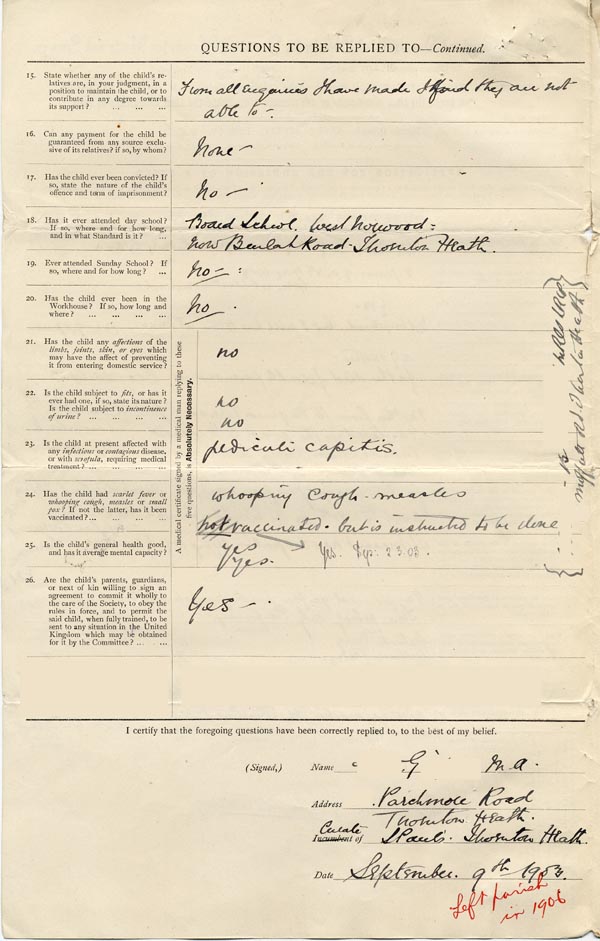 QUESTIONS TO BE REPLIED TO—Continued.
15. State whether any of the child's re-
latives are, in your judgment, in a
position to maintain the child, or to
contribute in any degree towards
its support? ... ... ...
From all enquiries I have made I find they are not
able to –
16. Can any payment for the child be
guaranteed from any source exclu-
sive of its relatives? if so, by whom?
None –
17. Has the child ever been convicted? If
so, state the nature of the child's
offence and term of imprisonment?
No –
18. Has it ever attended day school?
If so, where and for how long,
and in what Standard is it? ...
Board School. West Norwood :
now Beulah Road. Thornton Heath.
19. Ever attended Sunday School? If
so, where and for how long? ...
No – :
20. Has the child ever been in the
Workhouse? If so, how long and
where? ... ... ... ...
No .
A medical certificate signed by a medical man replying to these
five questions, is Absolutely Necessary.
21. Has the child any affections of the
limbs, joints, skin, or eyes which
may have the affect of preventing
it from entering domestic service?
no
22. Is the child subject to fits, or has it
ever had one, if so, state its nature?
Is the child subject to incontinence
of urine? ... ... ... ...
no
no
23. Is the child at present affected with
any infectious or contagious disease,
or with scrofula, requiring medical
treatment? ... ... ... ...
pediculi capitis.
24. Has the child had scarlet fever or
whooping cough, measles or small
pox? If not the latter, has it been
vaccinated? ... ... ... ...
whooping cough - measles
not vaccinated - but is instructed to be done
25. Is the child's general health good,
and has it average mental capacity?
yes
Yes.
Yes. Sep: 23.03.
26. Are the child's parents, guardians,
or next of kin willing to sign an
agreement to commit it wholly to
the care of the Society, to obey the
rules in force, and to permit the
said child, when fully trained, to be
sent to any situation in the United
Kingdom which may be obtained
for it by the Committee? ... ...
Yes – .
I certify that the foregoing questions have been correctly replied to, to the best of my belief.
(Signed,) Name G M.A.
Address Parchmore Road
Thornton Heath.
Curate
Incumbent of S Paul's. Thornton Heath.
Date September. 9th 1903.
Left parish
in 1906